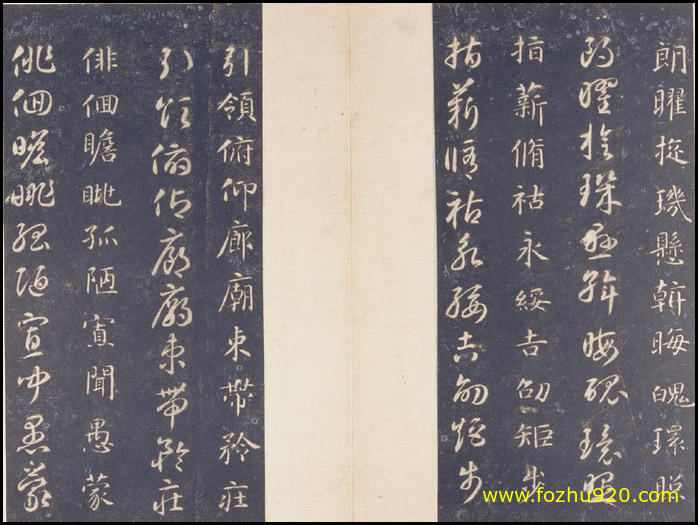 朗曜旋璣懸斡晦魄環照
朗曜旋璣懸斡晦魄環照
指薪脩祜永綏吉劭矩步
指薪脩祜永綏吉劭矩步
引領俯仰廊廟束帶矜莊
引領俯仰廊廟束帶矜莊
俳佪瞻眺孤陋寡聞愚蒙
俳佪瞻眺孤陋寡聞愚蒙
www.fozhu920.com